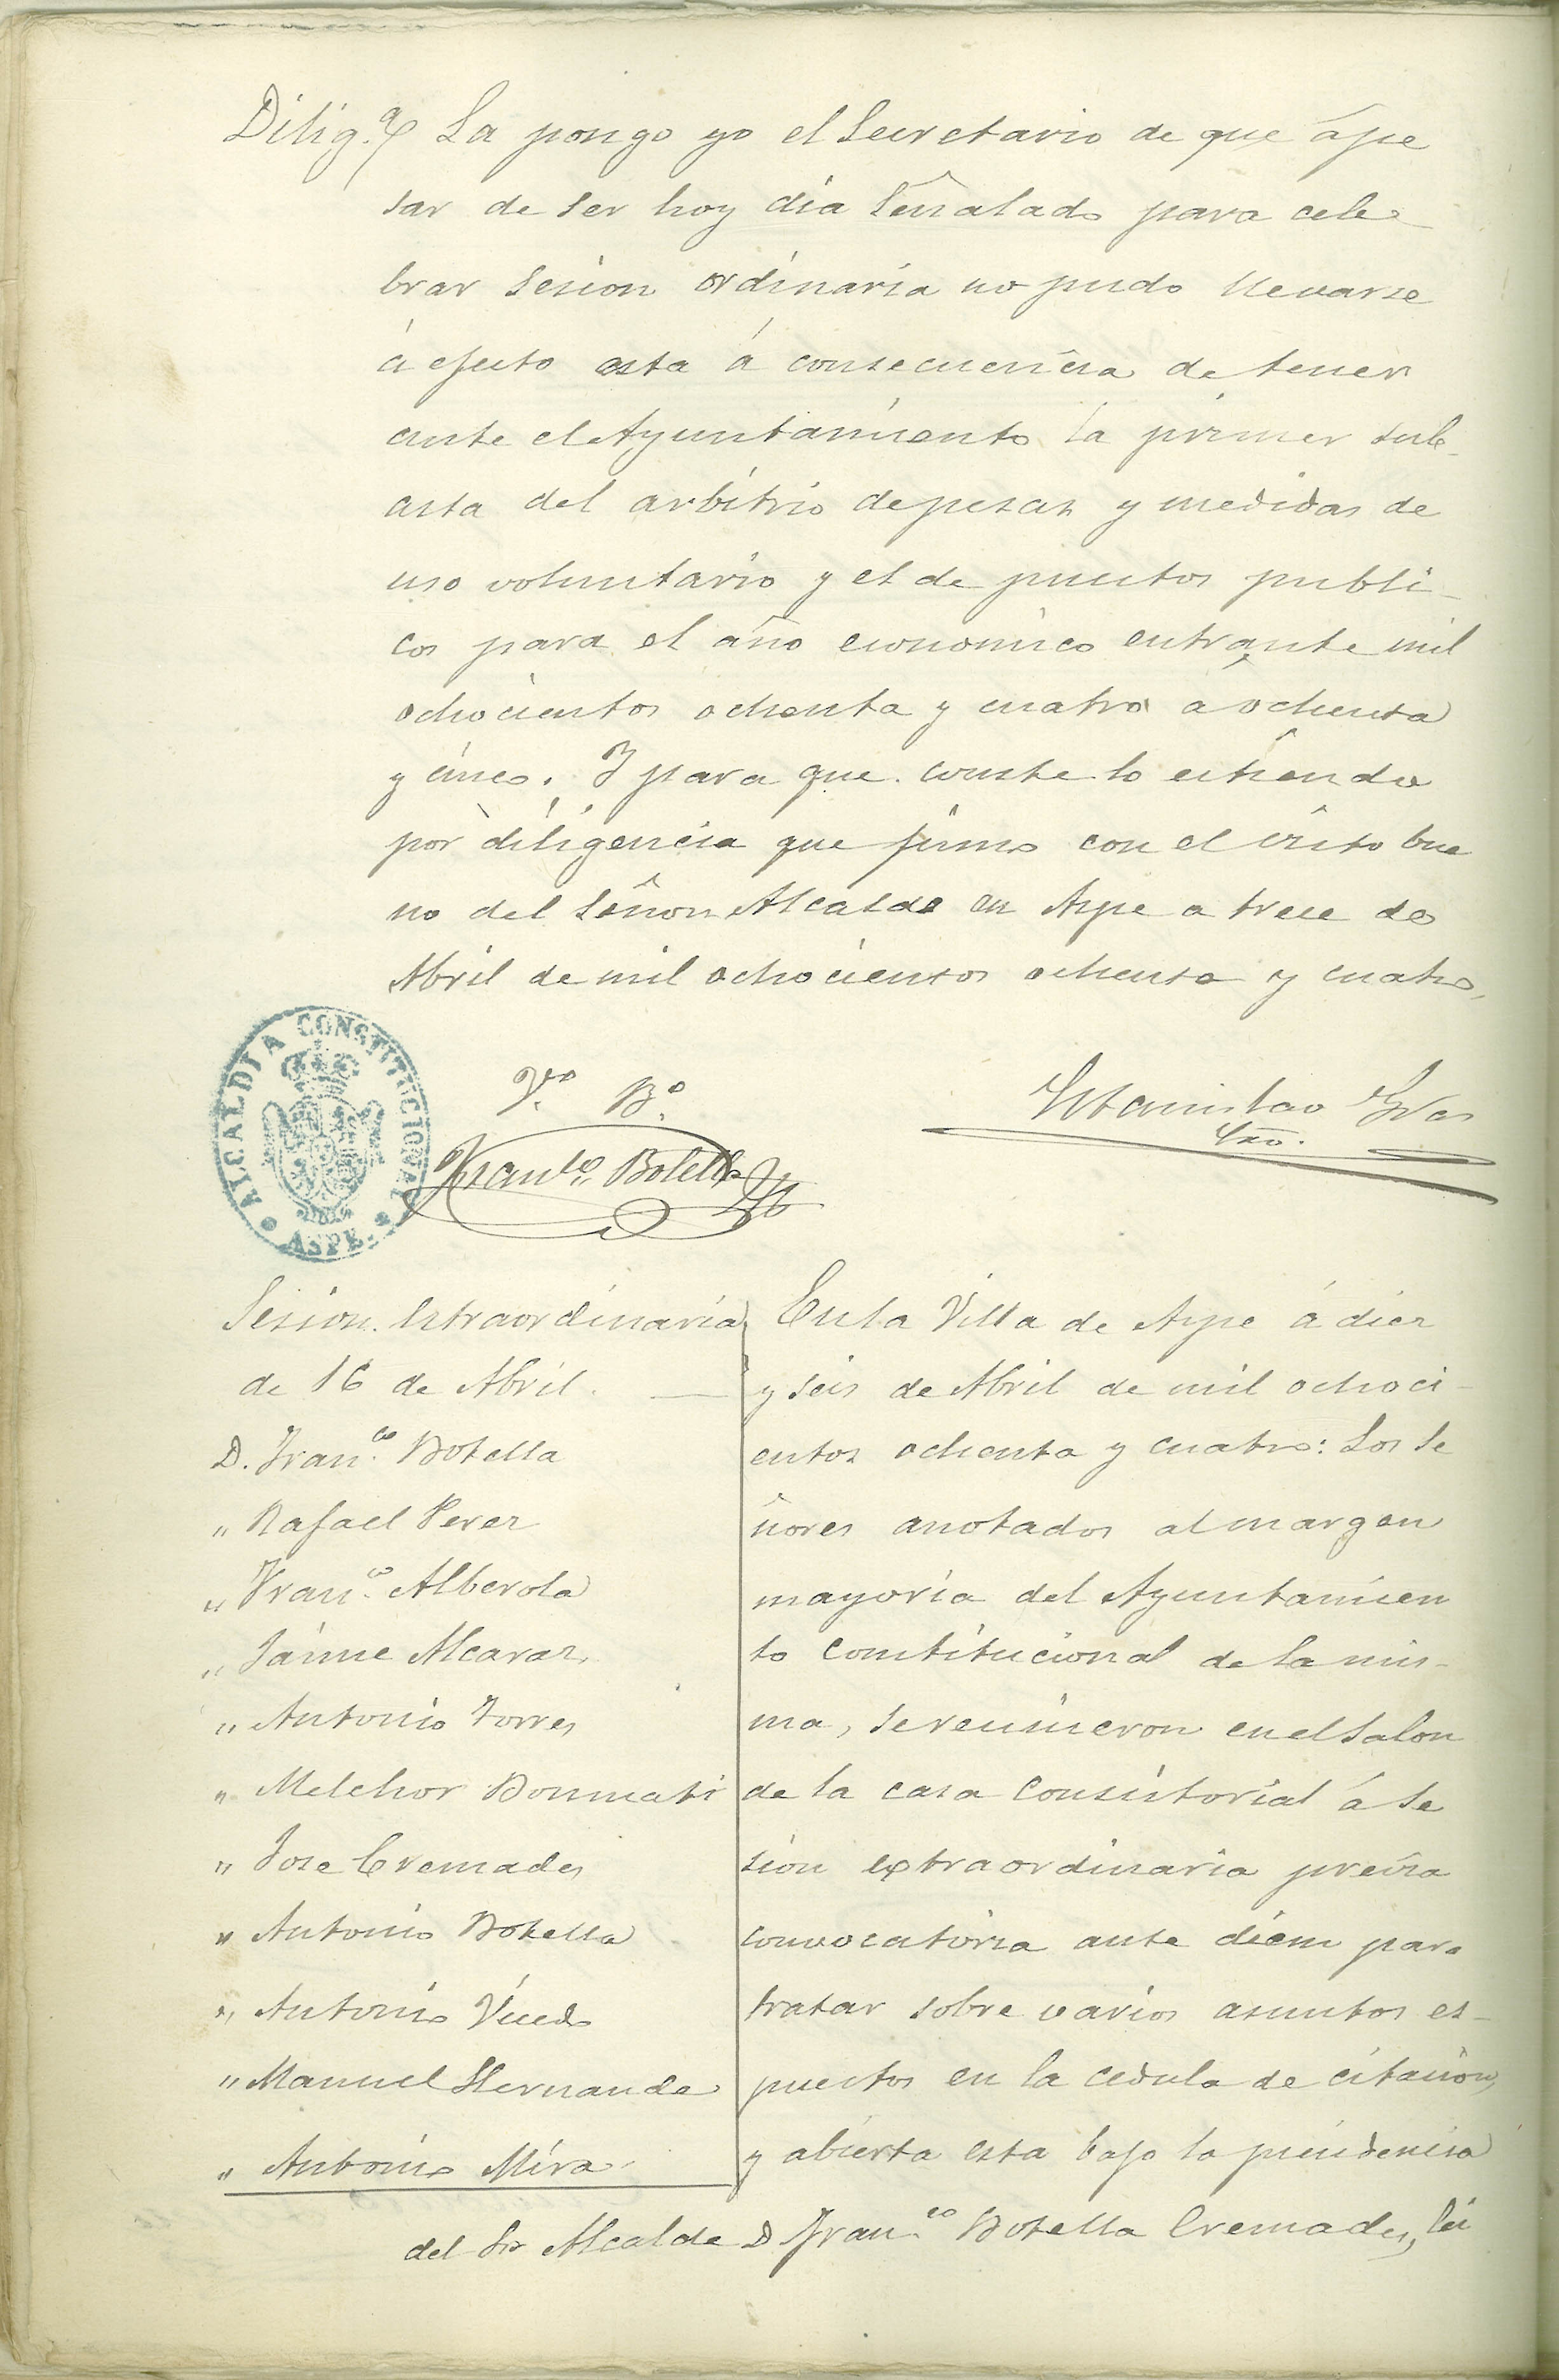 Dilig.ª La pongo yo el Secretario de que ápe
sar de ser hoy dia señalado para cele
brar sesion ordinaria no pudo llevarse
á efecto esta á consecuencia de tener
ante el Ayuntamiento la primer sub-
asta del arbitrio de pesas y medidas de
uso voluntario y el de puestos publi-
cos para el año economico entrante mil
ochocientos ochenta y cuatro a ochenta
y cinco. Y para que conste lo estiendo
por diligencia que firmo con el visto bue
no del Señor Alcalde en Aspe a trece de
Abril de mil ochocientos ochenta y cuatro.
ALCALDIA CONSTITUCIONAL
ASPE.
V.º B.º
Franco. Botella
Estanislao
Srio.
Sesion. Estraordinaria
de 16 de Abril. —
D. Fran.co Botella
" Rafael Perez
" Fran.co Alberola
" Jaime Alcaraz
" Antonio Torres
" Melchor Bonmati
" Jose Cremades
" Antonio Botella
" Antonio Vicedo
" Manuel Hernande
" Antonio Mira
En la Villa de Aspe á diez
y seis de Abril de mil ochoci-
entos ochenta y cuatro: Los Se
ñores anotados al margen
mayoria del Ayuntamien
to Constitucional de la mis-
ma, se reunieron en el Salon
de la casa Consistorial á se
sion extraordinaria previa
convocatoria ante diem para
tratar sobre varios asuntos es-
puestos en la cedula de citacion,
y abierta esta bajo la presidencia
del Sr. Alcalde D Fran.co Botella Cremades, lei